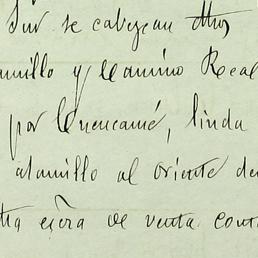 Sur se cabezean dhos
amillo y Camino Real
por Cuencamé, linda
alamillo al oriente de
tra esčra de venta cont